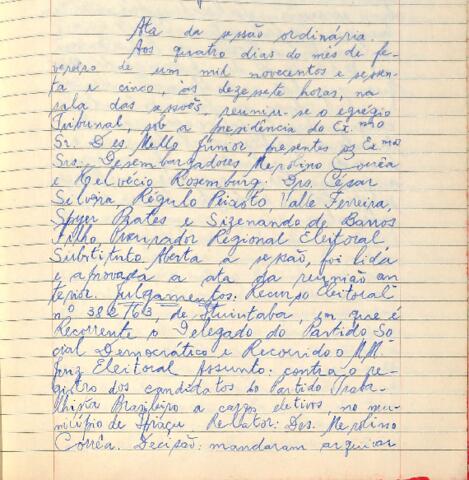 Ata da sessão ordinária.
Aos quatro dias do mês de fe-
vereiro de um mil novecentos e sessen-
ta e cinco, às dezessete horas, na
sala das sessões, reuniu-se o egrégio
Tribunal, sob a presidência do Exmo
Sr. Des. Mello Júnior, presentes os Exmos
Srs. Desembargadores Merolino Corrêa
e Helvécio Rosemburg; Drs. César
Silveira, Régulo Peixoto, Valle Ferreira,
Spyer Prates e Sizenando de Barros
Filho, Procurador Regional Eleitoral
Substituto. Aberta a sessão, foi lida
e aprovada a ata da reunião an
terior. Julgamentos: Recurso Eleitoral
nº 382/63, de Ituiutaba, em que é
Recorrente o Delegado do Partido So
cial Democrático e Recorrido o MM.
Juiz Eleitoral. Assunto: contra o re-
gistro dos candidatos do Partido Traba-
lhista Brasileiro a cargos eletivos, no mu-
nicípio de Ipiaçu. Relator: Des. Merolino
Corrêa. Decisão: mandaram arquivar